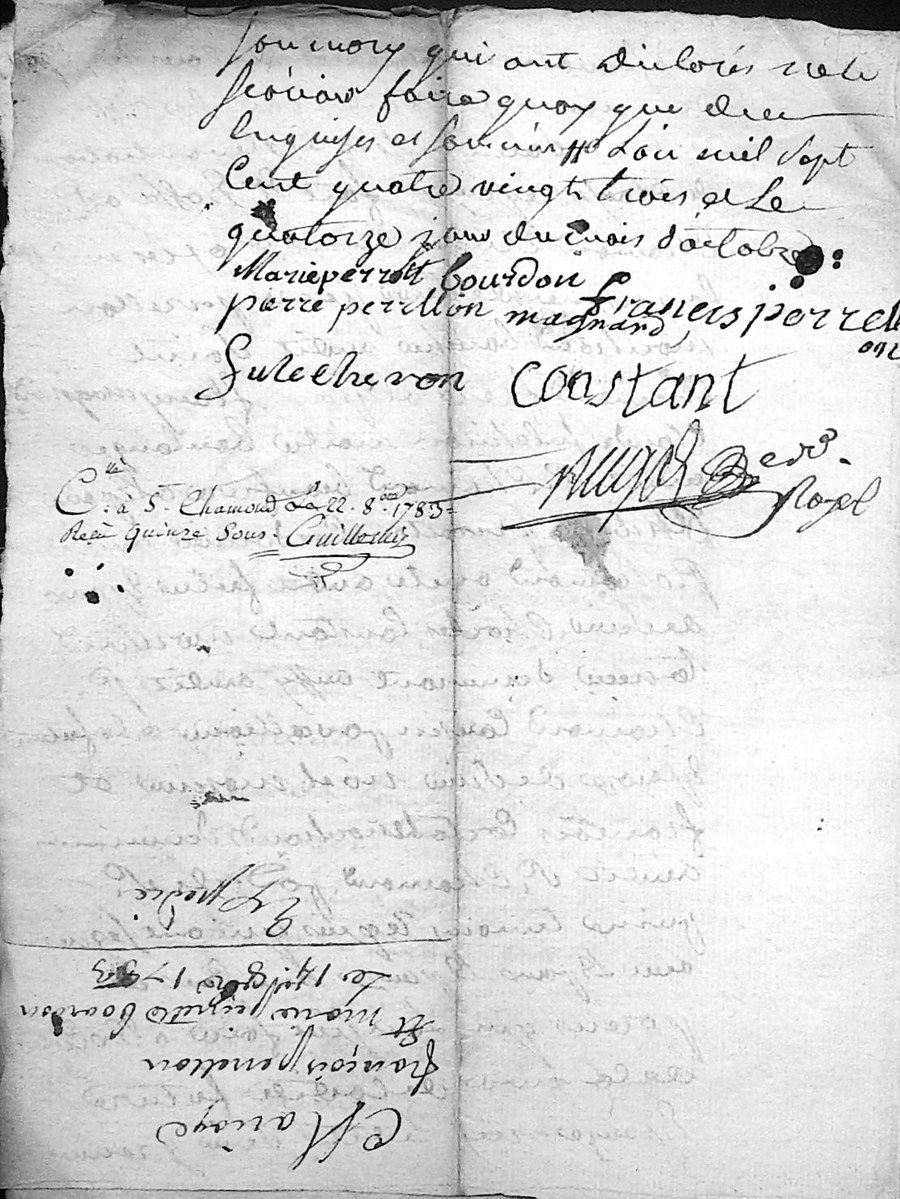 son mary qui ont déclarés ne le
scavoir faire quoy que de ce
enquises et sommés L'an mil sept
Cent quatre vingt trois et Le
quatorze jour du mois d'octobre
Marie perrette bourdon
pierre perrellon magnand francois perrell
on
Julecheron constant
no.re Royal
C.llé à S.t Chamond Le 22. 8.bre 1783
Reçu quinze Sous. Guillemin
Mariage
françois perrellon
Et marie perrette bourdon
Le 14 8bre 1783
Expédié